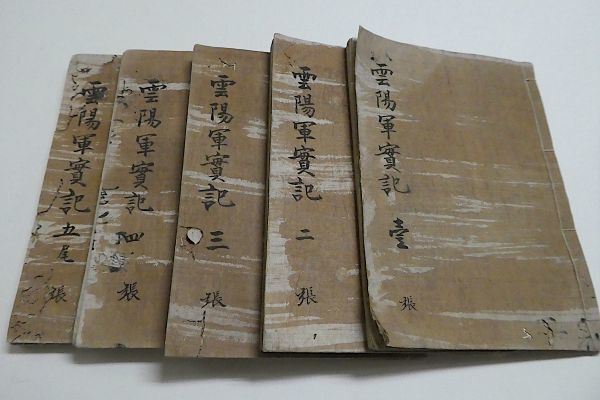 雲陽軍實記
壹
張
雲陽軍實記
二
張
雲陽軍實記
三
張
雲陽軍實記
四
張
雲陽軍實記
五尾
張